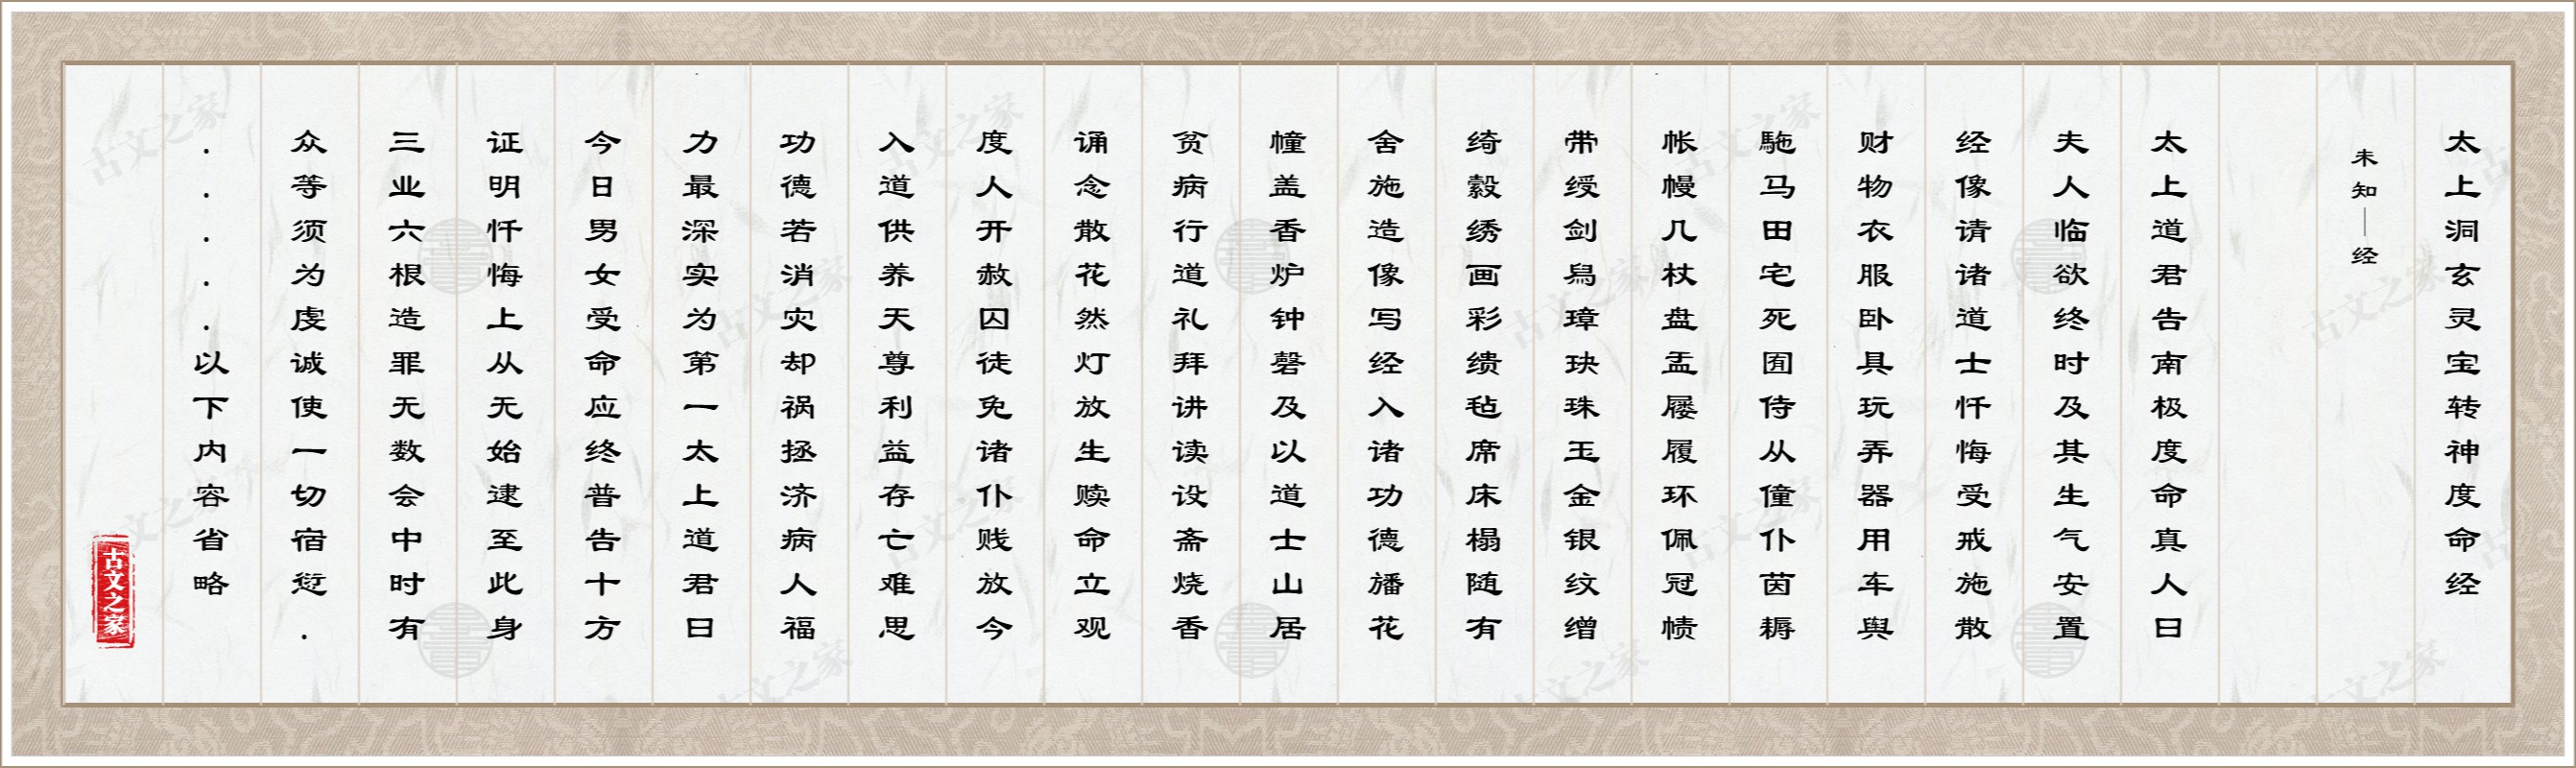 太上洞玄灵宝转神度命经
未知—经
太上道君告南极度命真人曰
夫人临欲终时及其生气安置
经像请诸道士忏悔受戒施散
财物衣服卧具玩弄器用车舆
駞马田宅死囿侍从僮仆茵褥
帐幔几杖盘盂屦履环佩冠帻
带绶剑舄璋玦珠玉金银纹缯
绮縠绣画彩缋毡席床榻随有
舍施造像写经入诸功德旛花
幢盖香炉钟磬及以道士山居
贫病行道礼拜讲读设斋烧香
诵念散花然灯放生赎命立观
度人开赦囚徒免诸仆贱放今
入道供养天尊利益存亡难思
功德若消灾却祸拯济病人福
力最深实为第一太上道君曰
今日男女受命应终普告十方
证明忏悔上从无始逮至此身
三业六根造罪无数会中时有
众等须为虔诚使一切宿愆.
.....以下内容省略
古文之家